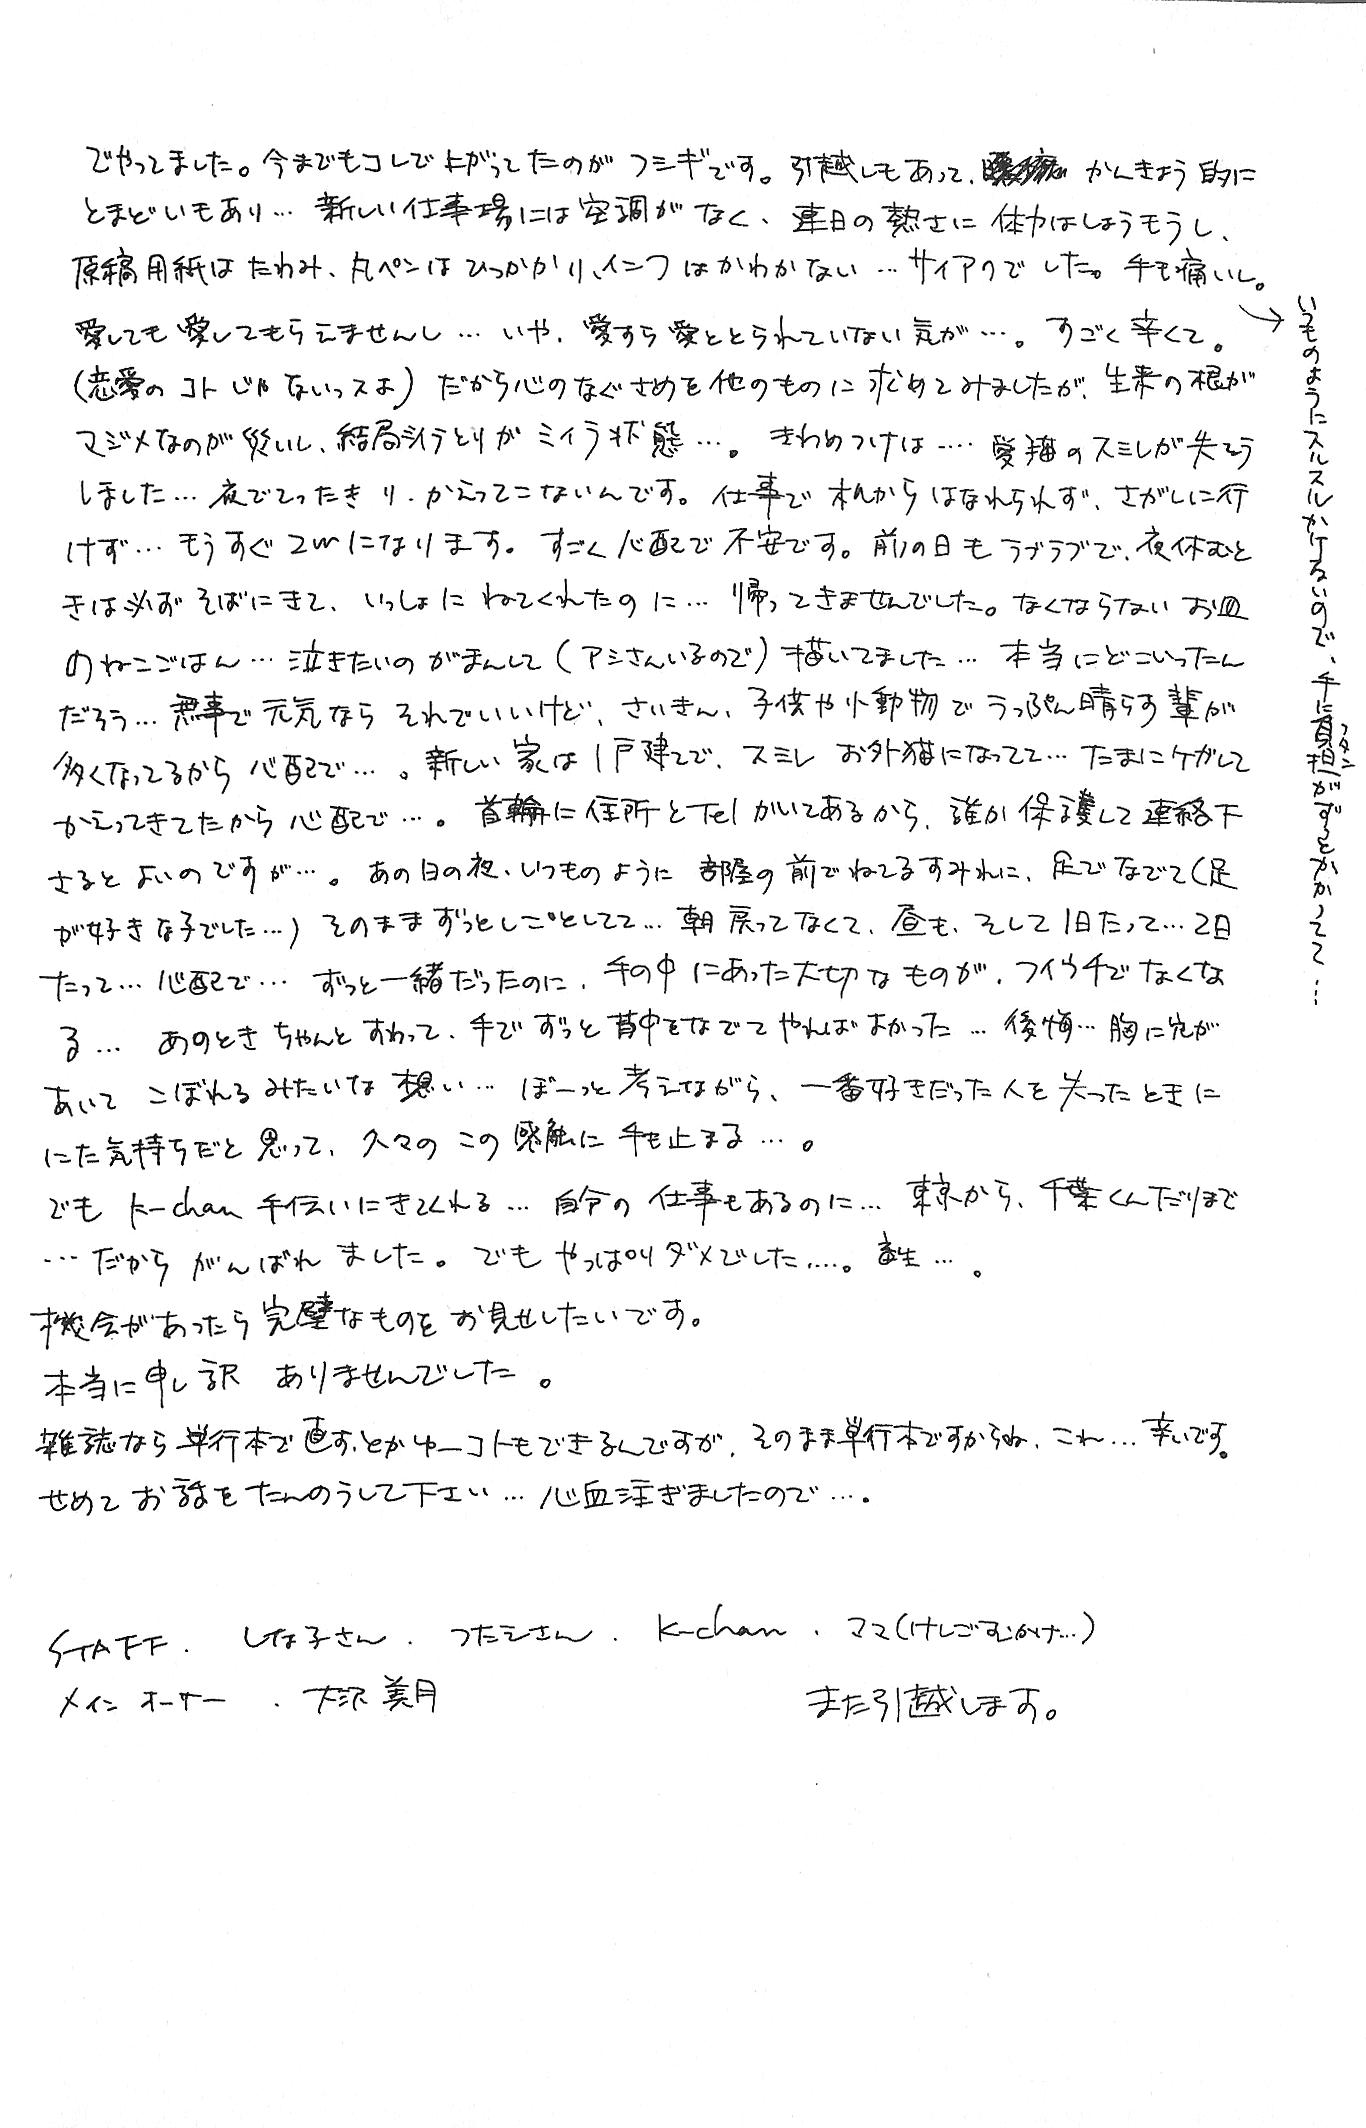 でやってました。今までもコレで上がってたのがフシギです。引越しもあって、かんきょう的に
とまどいもあり… 新しい仕事場には空調がなく、連日の熱さに体力はしょうもうし、
原稿用紙はたわみ、丸ペンはひっかかり、インクはかわかない…サイアクでした。手も痛いし。
→いつものようにスルスルかけないので、手に負担がずっとかかってて…
フタン
愛しても愛してもらえませんし…いや、愛すら愛ととられていない気が…。すごく辛くて。
(恋愛のコトじゃないっスよ)だから心のなぐさめを他のものに求めてみましたが、生来の根が
マジメなのが災いし、結局ミイラとりがミイラ状態…。きわめつけは…‥愛猫のスミレが失そう
しました…夜でてったきり、かえってこないんです。仕事で机からはなれられず、さがしに行
けず…もうすぐ2wになります。すごく心配で不安です。前の日もラブラブで、夜休むと
きは必ずそばにきて、いっしょにねてくれたのに…帰ってきませんでした。なくならないお皿
のねこごはん…泣きたいのがまんして(アシさんいるので)描いてました…本当にどこいったん
だろう…無事で元気ならそれでいいけど、さいきん、子供や小動物でうっぷん晴らす輩が
多くなってるから心配で…。新しい家は1戸建てで、スミレお外猫になってて…たまにケガして
かえってきてたから心配で…。首輪に住所とTelがいてあるから、誰か保護して連絡下
さるとよいのですが…。あの日の夜、いつものように部屋の前でねてるすみれに、足でなでて(足
が好きな子でした…)そのままずっとしごとしてて…朝戻ってなくて、昼も、そして1日たって…2日
たって…心配で…ずっと一緒だったのに、手の中にあった大切なものが、フイウチでなくな
る…あのときちゃんとすわって、手でずっと背中をなでてやればよかった…後悔…胸に穴が
あいてこぼれるみたいな想い…ぼーっと考えながら、一番好きだった人を失ったときに
にた気持ちだと思って、久々のこの感触に手も止まる…。
でもK-chan手伝いにきてくれる…自分の仕事もあるのに…東京から、千葉くんだりまで
…だからがんばれました。でもやっぱりダメでした‥‥。…。
機会があったら完璧なものをお見せしたいです。
本当に申し訳ありませんでした。
雑誌なら単行本で直す、とかゆーコトもできるんですが、そのまま単行本ですからね、これ…辛いです。
せめてお話をたんのうして下さい…心血注ぎましたので…。
STAFF.　しな子さん．つたえさん．K-chan．ママ(けしごむかけ…)
メインオーサー　．大沢美月
また引越します。